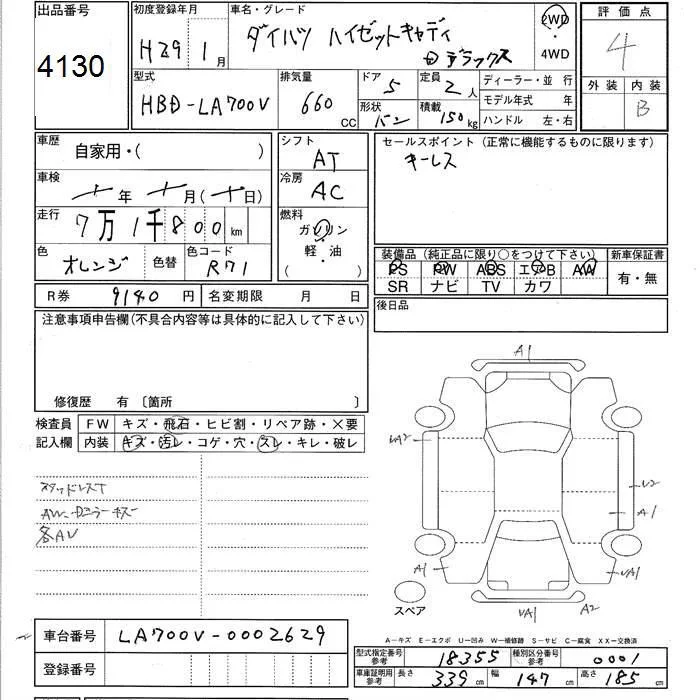 出品番号
4130
初度登録年月
H29 1月
車名・グレード
ダイハツ ハイゼットキャディ
デラックス
2WD
・
4WD
評価点
4
外装 内装
B
型式
HBD-LA700V
排気量
660 CC
ドア
5
形状
バン
定員
2人
積載
150kg
ディーラー・並行
モデル年式 年
ハンドル 左・右
車歴
自家用・( )
車検
年 月( 日)
走行
7万1千800km
色
オレンジ
色替
色コード
R71
シフト
AT
冷房
AC
燃料
ガソリン
・
軽・油
( )
セールスポイント(正常に機能するものに限ります)
キーレス
装備品(純正品に限り○をつけて下さい)
PS PW ABS エアB AW
SR ナビ TV カワ
新車保証書
有・無
R券 9140円
名変期限 月 日
後日品
注意事項申告欄(不具合内容等は具体的に記入して下さい)
修復歴 有〔箇所 〕
検査員
記入欄
FW キズ・飛石・ヒビ割・リペア跡・×要
内装 キズ・汚レ・コゲ・穴・スレ・キレ・破レ
スタッドレスT
各AU
A1
UA2
U2
A1
A1
UA1
UA1
A2
スペア
A−キズ E−エクボ U−凹み W−補修跡 S−サビ C−腐食 XX−交換済
車台番号 LA700V-0002629
登録番号
型式指定番号
参考
18355
種別区分番号
参考
0001
車庫証明用
参考
長さ 339cm
幅 147cm
高さ 185cm